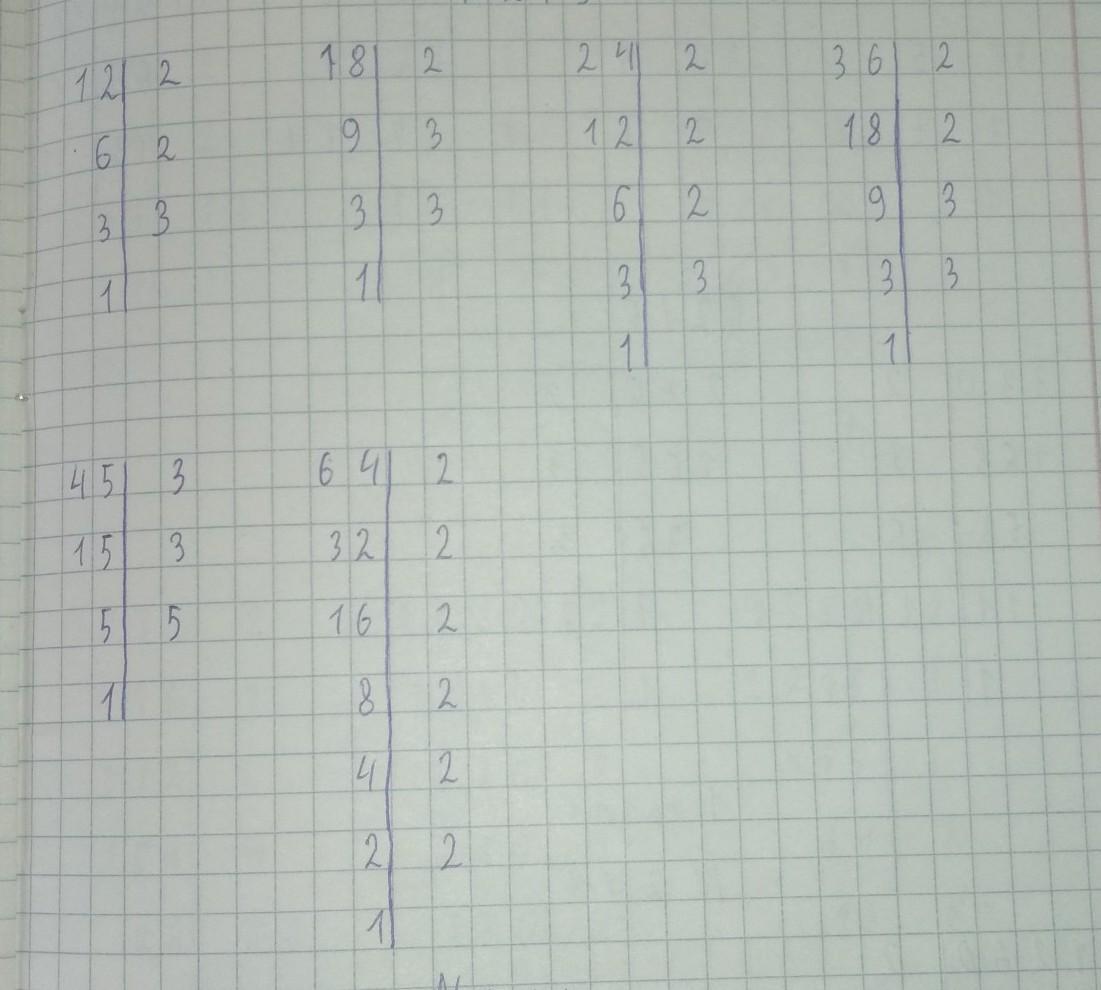 12 | 2 18 | 2 24 | 2 36 | 2
6 | 2 9 | 3 12 | 2 18 | 2
3 | 3 3 | 3 6 | 2 9 | 3
1 | 1 | 3 | 3 3 | 3
1 | 1 |
45 | 3 64 | 2
15 | 3 32 | 2
5 | 5 16 | 2
1 | 8 | 2
4 | 2
2 | 2
1 |